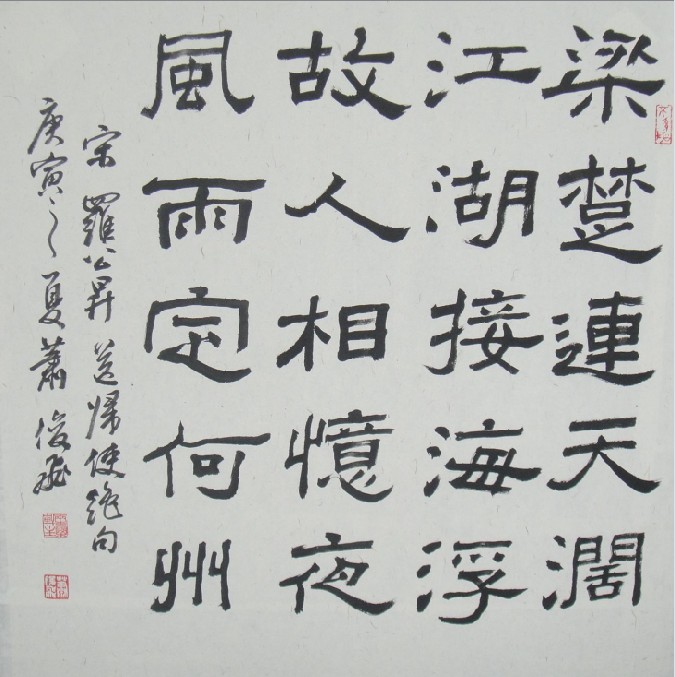 梁楚連天濶
江湖接海浮
故人相憶夜
風雨定何州
宋 羅公昇 送歸使絕句
庚寅之夏蕭俊